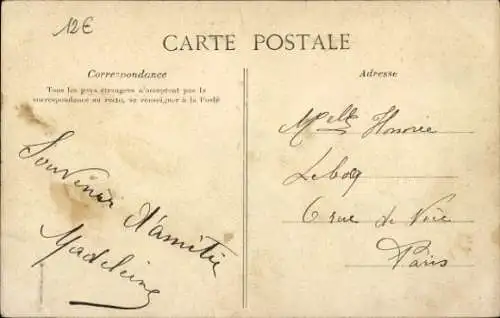 12€
CARTE POSTALE
Correspondance
Tous les pays étrangers n'acceptent pas la
correspondance au recto, se renseigner à la Poste
Souvenir d'amitié
Madeleine
Adresse
Melle Honorée
6 rue de
Paris